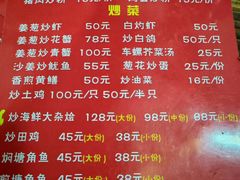 炒菜
姜葱炒虾 50元 白灼虾 50元
姜葱炒花蟹 78元 炒白鸽 50元/只
姜葱炒青蟹 100元 车螺芥菜汤 25元
沙姜炒鱿鱼 55元 葱花炒蛋 25元
香煎黄鳝 50元 炒油菜 18元/份
炒土鸡 100元/只 50元/半只
炒海鲜大杂烩 128元(大份) 98元(中份) 68元(小份)
炒田鸡 45元(大份) 38元(小份)
焖塘角鱼 45元(大份) 38元(小份)